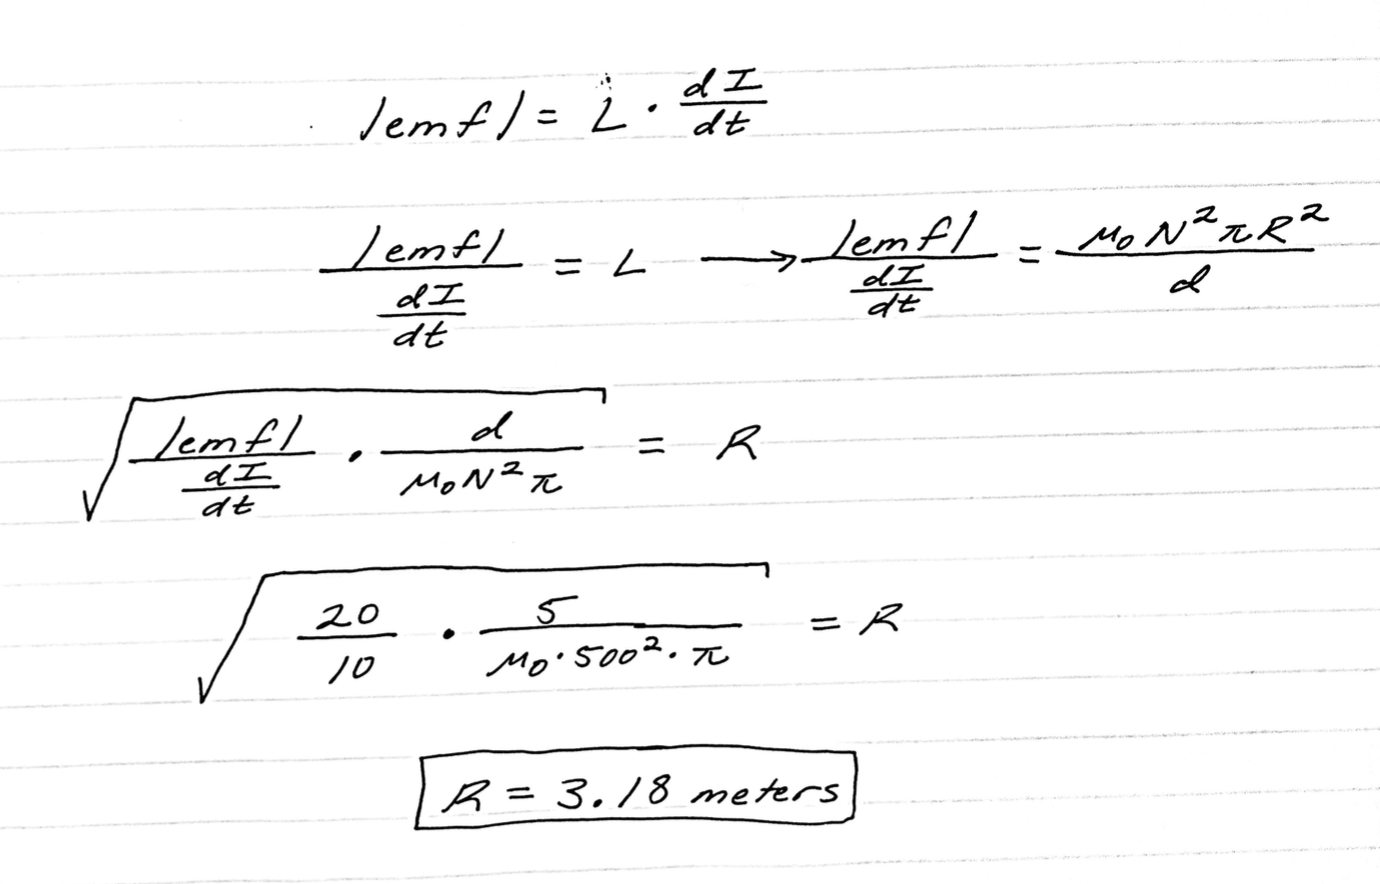 |emf| = L · dI/dt
|emf|/(dI/dt) = L ⟶ |emf|/(dI/dt) = μ₀N²πR²/d
√(|emf|/(dI/dt) · d/(μ₀N²π)) = R
√(20/10 · 5/(μ₀·500²·π)) = R
R = 3.18 meters